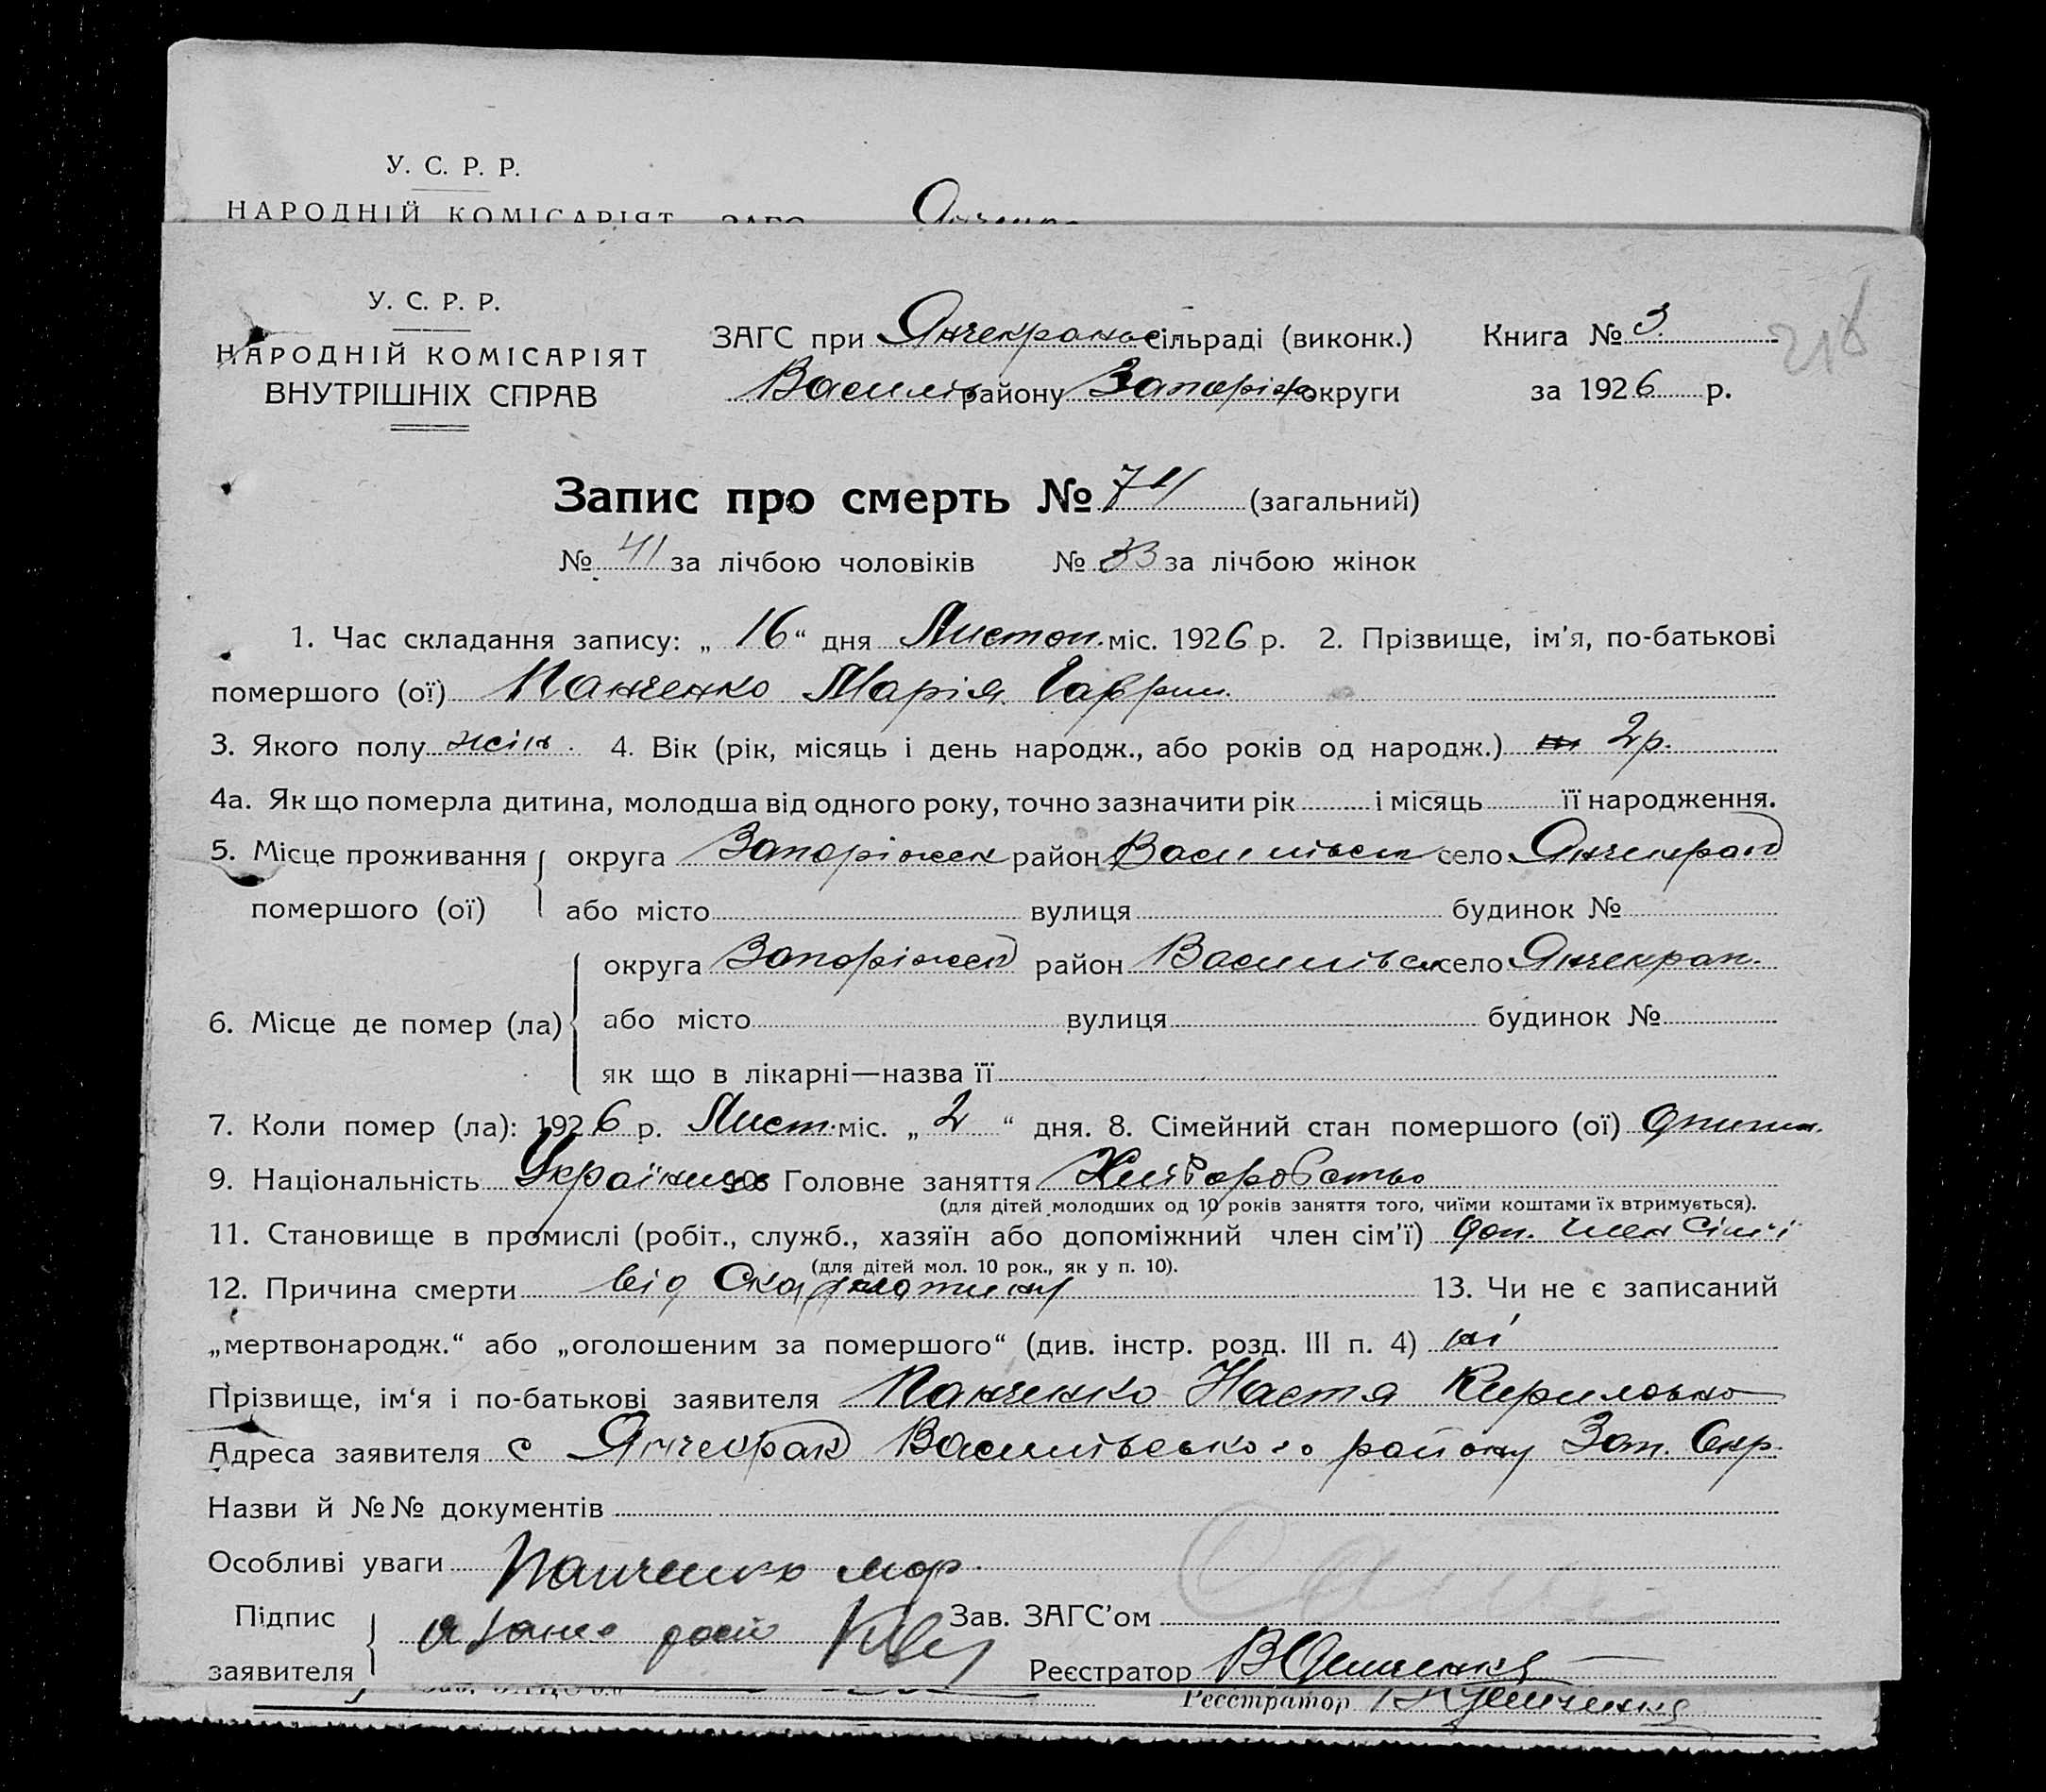 У. С. Р. Р.
НАРОДНІЙ КОМІСАРІЯТ
У. С. Р. Р.
НАРОДНІЙ КОМІСАРІЯТ
ВНУТРІШНІХ СПРАВ
ЗАГС при Янчекранс сільраді (виконк.) Книга № 3. 216
Василів району Запоріж округи за 1926 р.
Запис про смерть № 74 (загальний)
№ 41 за лічбою чоловіків № 33 за лічбою жінок
1. Час складання запису: „ 16 “ дня Листоп. міс. 1926 р. 2. Прізвище, ім'я, по-батькові
помершого (ої) Панченко Марія Гаврил.
3. Якого полу жін. 4. Вік (рік, місяць і день народж., або років од народж.) 2 р.
4а. Як що померла дитина, молодша від одного року, точно зазначити рік і місяць її народження.
5. Місце проживання округа Запоріжск район Васильвск село Янчекрак
помершого (ої) або місто вулиця будинок №
округа Запоріжск район Васильвск село Янчекрак.
6. Місце де помер (ла) або місто вулиця будинок №
як що в лікарні—назва її
7. Коли помер (ла): 1926 р. Лист. міс. „ 2 “ дня. 8. Сімейний стан помершого (ої)
9. Національність Українка 10 Головне заняття Хліборобство
(для дітей молодших од 10 років заняття того, чиїми коштами їх втримується).
11. Становище в промислі (робіт., служб., хазяїн або допоміжний член сім'ї) доп. член сім'ї
(для дітей мол. 10 рок., як у п. 10).
12. Причина смерти від Скарлатини 13. Чи не є записаний
„мертвонародж.“ або „оголошеним за помершого“ (див. інстр. розд. III п. 4) ні
Прізвище, ім‘я і по-батькові заявителя Панченко Настя Кириловно
Адреса заявителя с Янчекрак Васильвського району Зап. Окр.
Назви й №№ документів
Особливі уваги Панченко
Підпис Зав. ЗАГС'ом
заявителя Реєстратор
Реєстратор